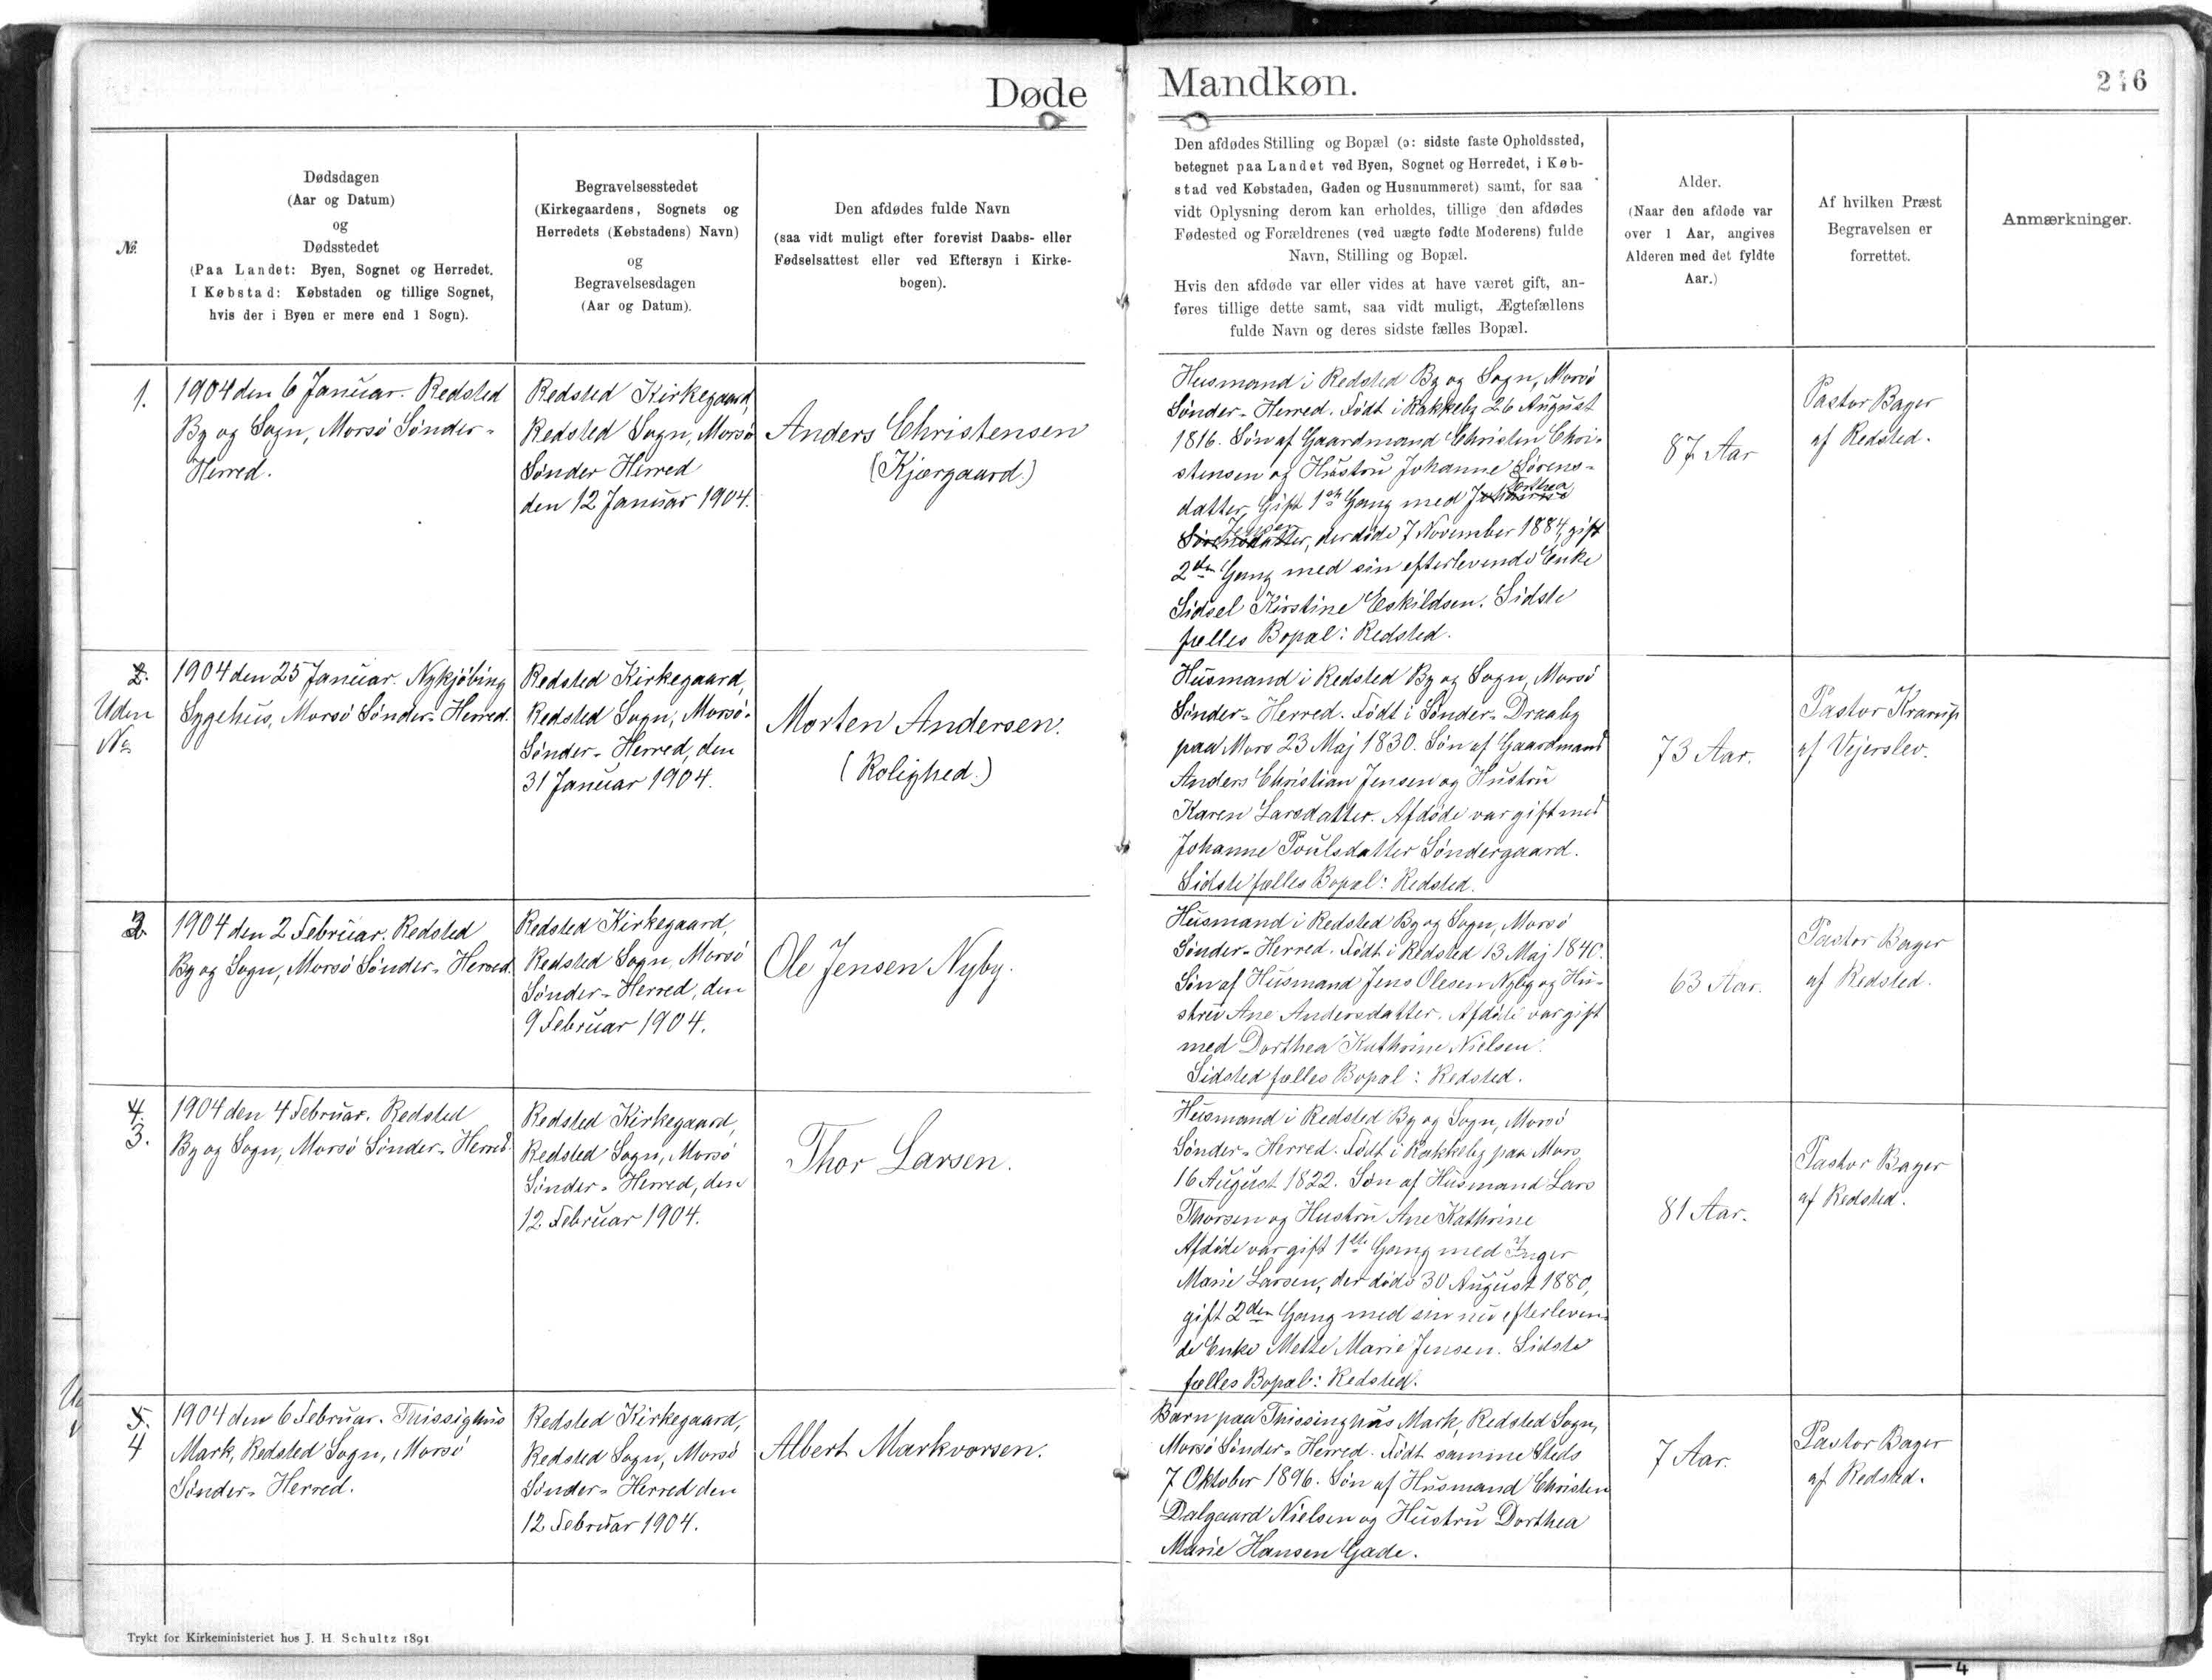 Døde
Mandkøn.
246
№
Dødsdagen
(Aar og Datum)
og
Dødsstedet
(Paa Landet: Byen, Sognet og Herredet.
I Købstad: Købstaden og tillige Sognet,
hvis der i Byen er mere end 1 Sogn).
Begravelsesstedet
(Kirkegaardens, Sognets og
Herredets (Købstadens) Navn)
og
Begravelsesdagen
(Aar og Datum).
Den afdødes fulde Navn
(saa vidt muligt efter forevist Daabs- eller
Fødselsattest eller ved Eftersyn i Kirke-
bogen).
Den afdødes Stilling og Bopæl (ɔ: sidste faste Opholdssted,
betegnet paa Landet ved Byen, Sognet og Herredet, i Køb-
stad ved Købstaden, Gaden og Husnummeret) samt, for saa
vidt Oplysning derom kan erholdes, tillige den afdødes
Fødested og Forældrenes (ved uægte fødte Moderens) fulde
Navn, Stilling og Bopæl.
Hvis den afdøde var eller vides at have været gift, an-
føres tillige dette samt, saa vidt muligt, Ægtefællens
fulde Navn og deres sidste fælles Bopæl.
Alder.
(Naar den afdøde var
over 1 Aar, angives
Alderen med det fyldte
Aar.)
Af hvilken Præst
Begravelsen er
forrettet.
Anmærkninger.
1.
1904 den 6 Januar. Redsted
By og Sogn, Morsø Sønder-
Herred.
Redsted Kirkegaard,
Redsted Sogn, Morsø
Sønder Herred
den 12 Januar 1904.
Anders Christensen
(Kjærgaard)
Husmand i Redsted By og Sogn, Morsø
Sønder-Herred. Født i Rakkeby 26 August
1816. Søn af Gaardmand Christen Chri-
stensen og Hustru Johanne Sørens-
datter. Gift 1ste Gang med Johanne Dorthea
Sørensdatter Jensen, der døde 7 November 1884, gift
2den Gang med sin efterlevende Enke
Sidsel Kirstine Eskildsen. Sidste
fælles Bopæl: Redsted.
87 Aar
Pastor Bager
af Redsted.
2.
Uden
No
1904 den 25 Januar. Nykjøbing
Sygehus, Morsø Sønder-Herred.
Redsted Kirkegaard,
Redsted Sogn, Morsø-
Sønder-Herred, den
31 Januar 1904.
Morten Andersen.
(Rolighed.)
Husmand i Redsted By og Sogn, Morsø
Sønder-Herred. Født i Sønder-Draaby
paa Mors 23 Maj 1830. Søn af Gaardmand
Anders Christian Jensen og Hustru
Karen Larsdatter. Afdøde var gift med
Johanne Poulsdatter Søndergaard.
Sidste fælles Bopæl: Redsted.
73 Aar.
Pastor Krarup
af Vejerslev.
2
1904 den 2 Februar. Redsted
By og Sogn, Morsø Sønder-Herred.
Redsted Kirkegaard,
Redsted Sogn, Morsø
Sønder-Herred, den
9 Februar 1904.
Ole Jensen Nyby.
Husmand i Redsted By og Sogn, Morsø
Sønder-Herred. Født i Redsted 13 Maj 1840.
Søn af Husmand Jens Olesen Nyby og Hu-
stru Ane Andersdatter. Afdøde var gift
med Dorthea Kathrine Nielsen.
Sidsted fælles Bopæl: Redsted.
63 Aar.
Pastor Bager
af Redsted.
4.
3.
1904 den 4 Februar. Redsted
By og Sogn, Morsø Sønder-Herred.
Redsted Kirkegaard,
Redsted Sogn, Morsø
Sønder-Herred, den
12. Februar 1904.
Thor Larsen.
Husmand i Redsted By og Sogn, Morsø
Sønder-Herred. Født i Rakkeby paa Mors
16 August 1822. Søn af Husmand Lars
Thorsen og Hustru Ane Kathrine
Afdøde var gift 1ste Gang med Inger
Marie Larsen, der døde 30 August 1880,
gift 2den Gang med sin nu efterleven-
de Enke Mette Marie Jensen. Sidste
fælles Bopæl: Redsted.
81 Aar.
Pastor Bager
af Redsted.
5.
4
1904 den 6 Februar. Thissighus
Mark, Redsted Sogn, Morsø
Sønder-Herred.
Redsted Kirkegaard,
Redsted Sogn, Morsø
Sønder-Herred den
12 Februar 1904.
Albert Markvorsen.
Barn paa Thissinghus Mark, Redsted Sogn,
Morsø Sønder-Herred. Født samme Steds
7 Oktober 1896. Søn af Husmand Christen
Dalgaard Nielsen og Hustru Dorthea
Marie Hansen Gade.
7 Aar.
Pastor Bager
af Redsted.
Trykt for Kirkeministeriet hos J. H. Schultz 1891
4